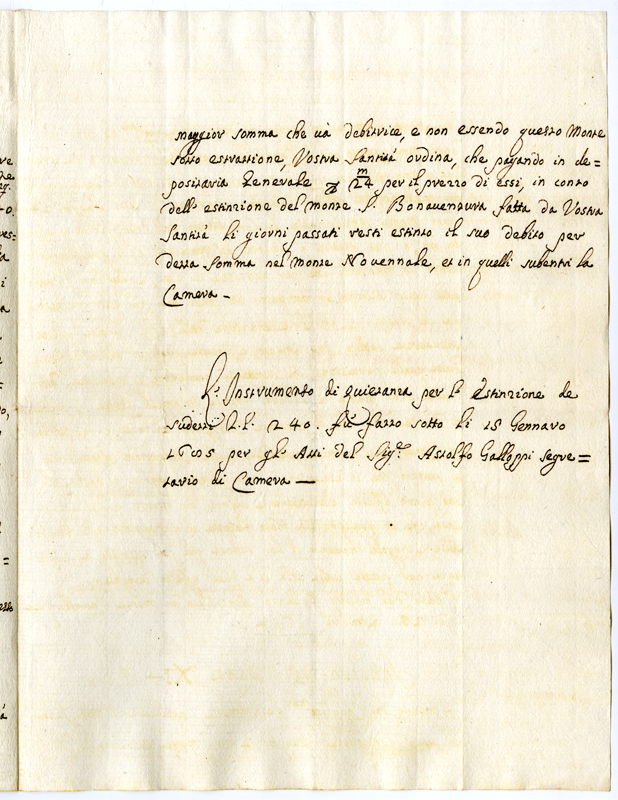 maggior somma che và debitrice, e non essendo questo Monte
sotto estrattione, Vostra Santità ordina, che pagando in de=
positaria Generale ∇ 24 m per il prezzo di essi, in conto
dell' estinzione del monte S. Bonaventura fatta da Vostra
Santità li giorni passati resti estinto il suo debito per
detta somma nel Monte Novennale, et in quelli subentri la
Camera –
L'Instrumento di quietanza per l' Estinzione de
sudetti L.L. 240. fù fatto sotto li 15 Gennaro
per gl' Atti del Sig.re Astolfo Galloppi segre=
tario di Camera —